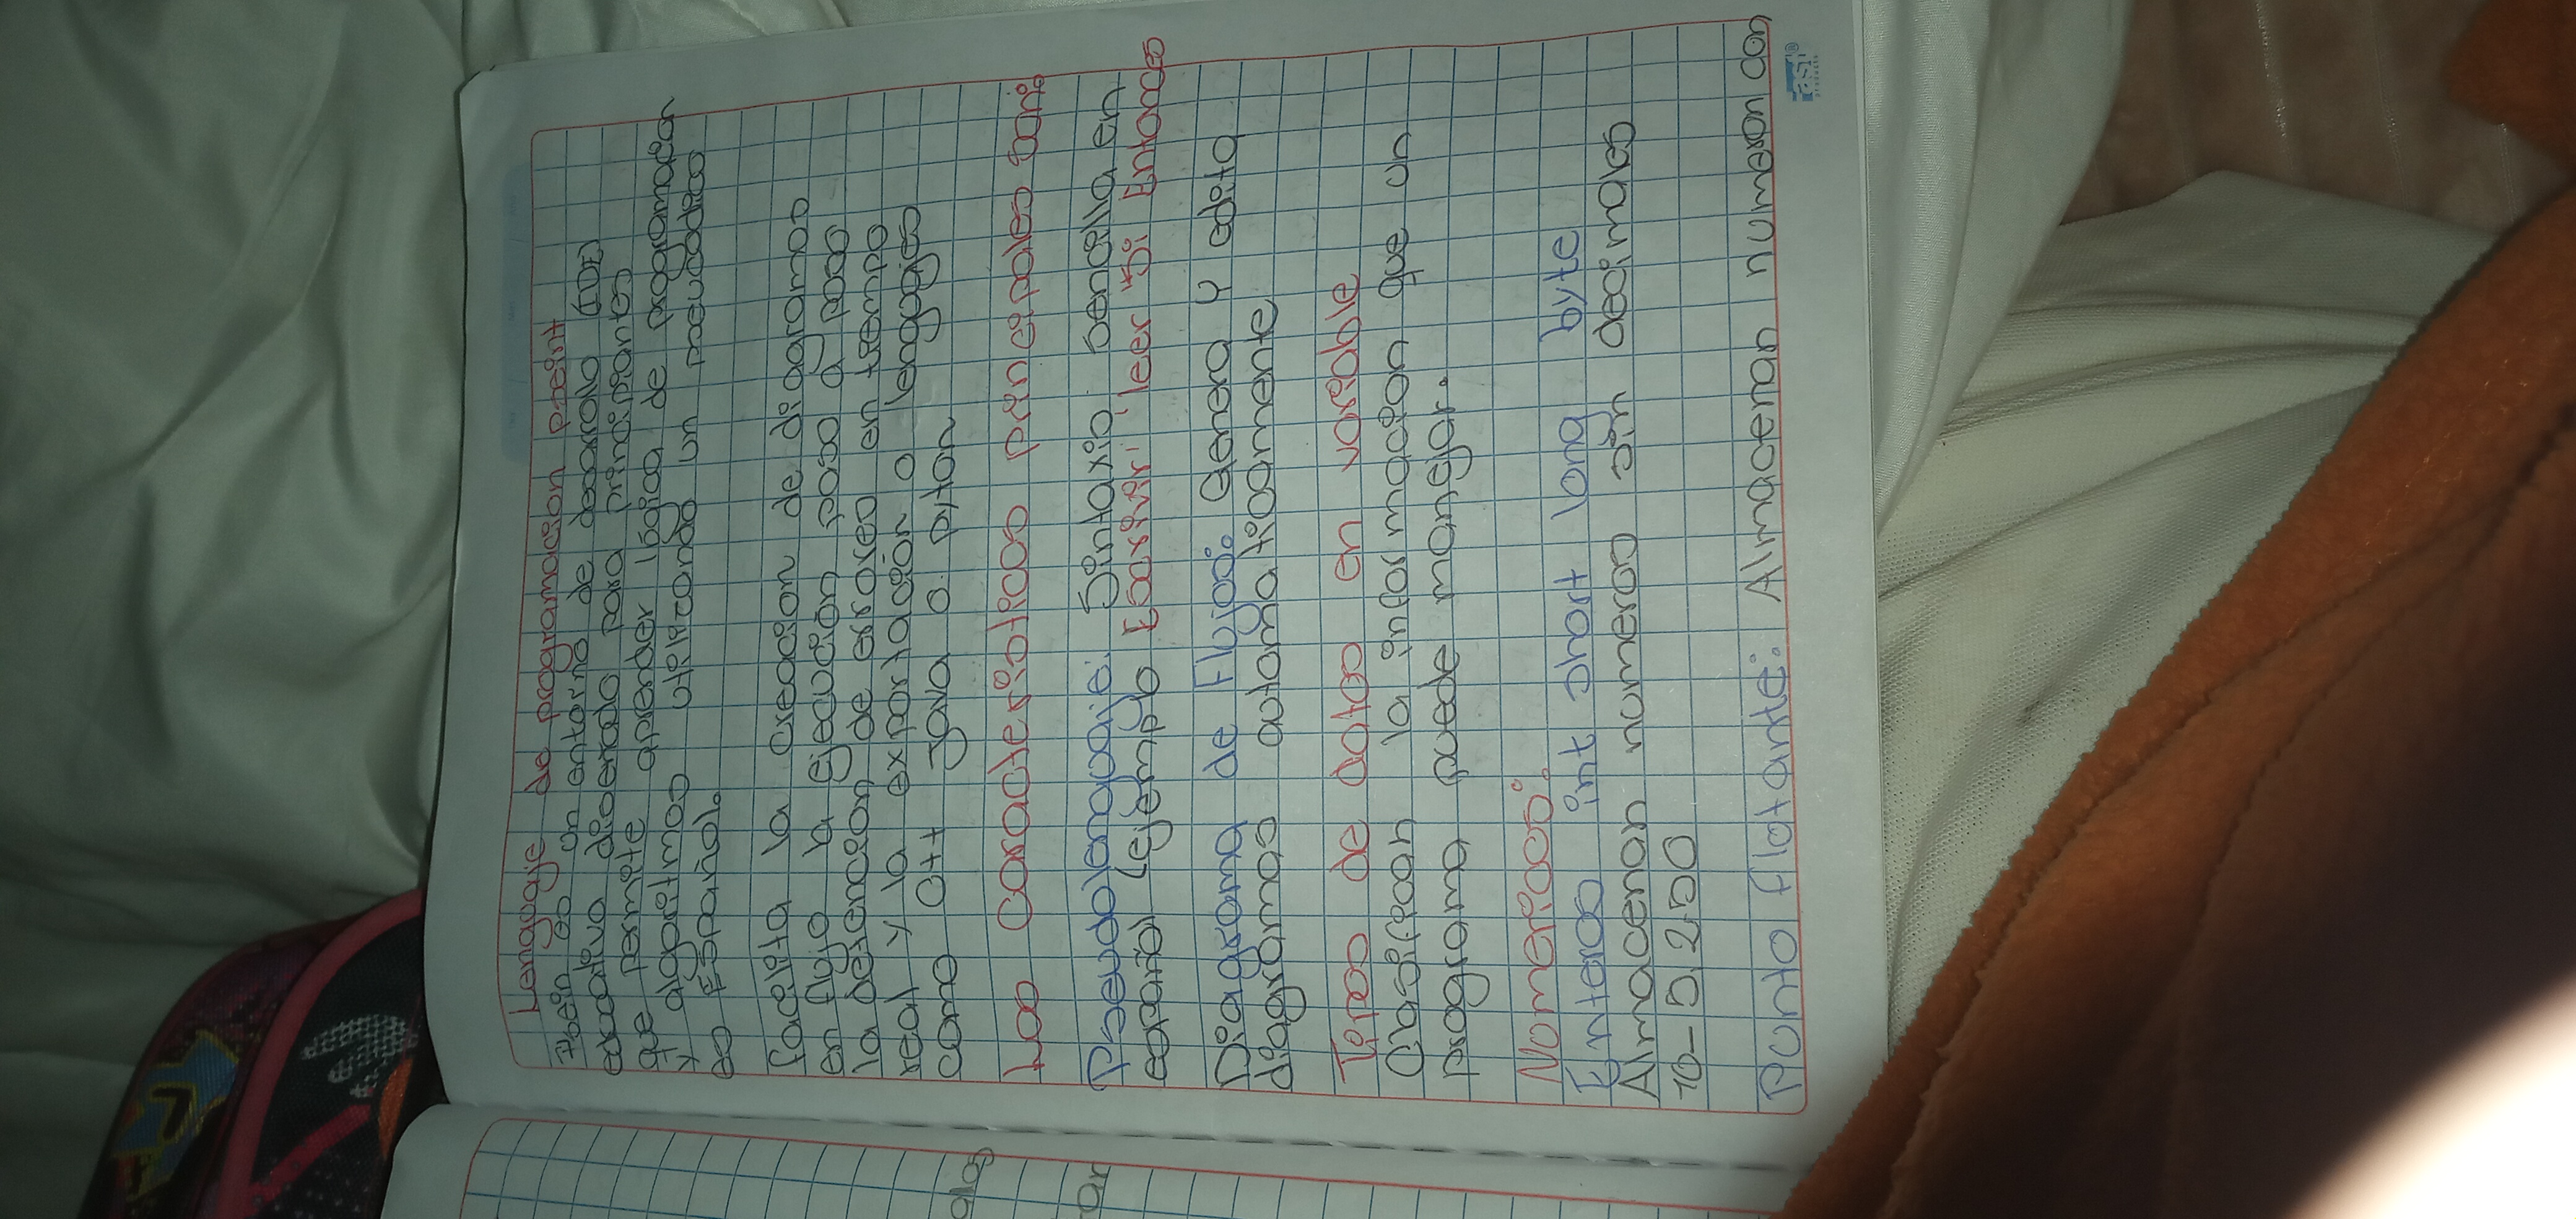 Lenguaje de programacion pseint
Psein es un entorno de desarrollo (IDE)
educativo diseñado para principiantes
que permite aprender lógica de programación
y algoritmos utilizando un pseucodico
es Español.
facilita la creacion de diagramos
en flujo la ejecución paso a paso
la detencion de erores en tiempo
real y la exportación a lenguajes
como C++ Java o pyton
Las caracteristicas principales son:
Pseudolenguaje: Sintaxis sencilla en
español (ejemplo Escrivir' leer "Si Entonces
Diagrama de Flujos: Genera y edita
diagramas automaticamente
Tipos de datos en variable
Clasifican la informacion que un
programa puede manejar.
Nomericos:
Enteros int short long byte
Almacenan numeros sin decimales
10-5,250
Punto flotante: Almacenan numeron con
alas
ar